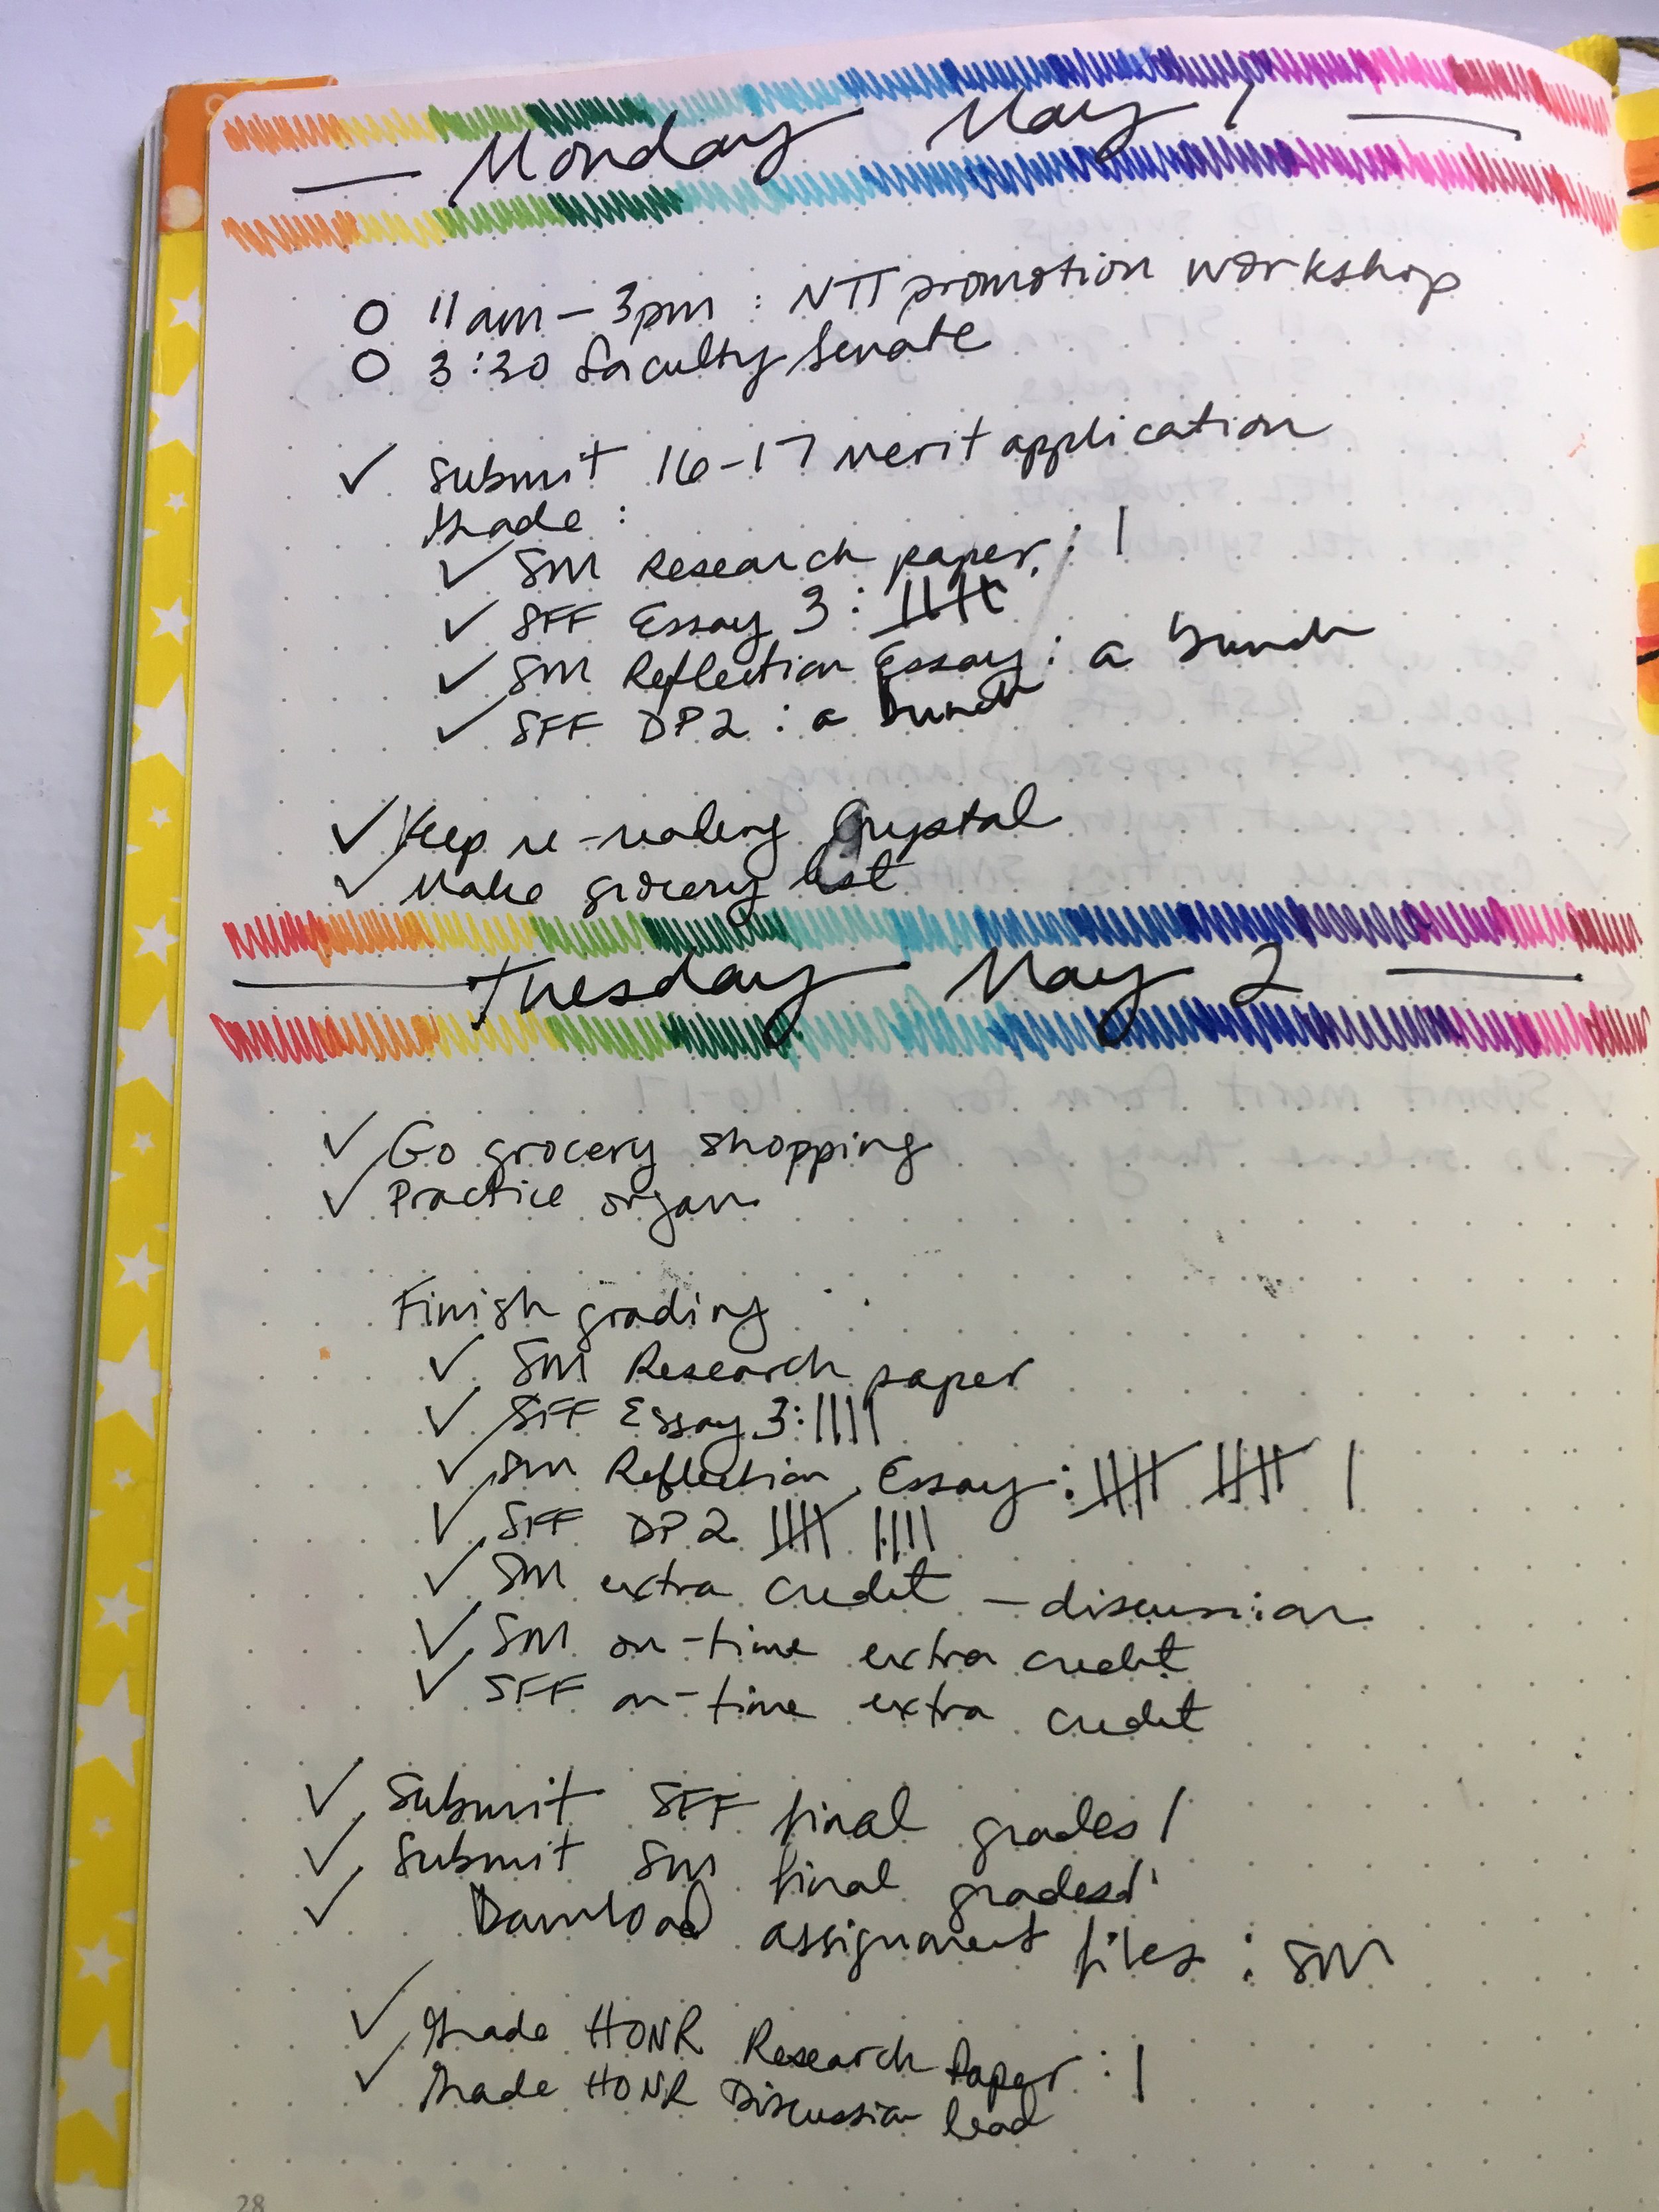 Monday May 1
O 11am – 3pm : NTT promotion workshop
O 3:30 faculty senate
✓ Submit 16-17 merit application
Grade :
✓ SM Research paper : |
✓ SFF Essay 3 : ||||
✓ SM Reflection Essay : a bunch
✓ SFF DP2 : a bunch
✓ Keep re-reading Crystal
✓ Make grocery list
Tuesday May 2
✓ Go grocery shopping
✓ Practice organ
Finish grading :
✓ SM Research paper
✓ SFF Essay 3: ||||
✓ SM Reflection Essay : |||| |||| |
✓ SFF DP2 |||| ||||
✓ SM extra credit – discussion
✓ SM on-time extra credit
✓ SFF on-time extra credit
✓ Submit SFF final grades!
✓ Submit SM final grades!
✓ Download assignment files : SM
✓ Grade HONR Research Paper : |
✓ Grade HONR Discussion lead
28